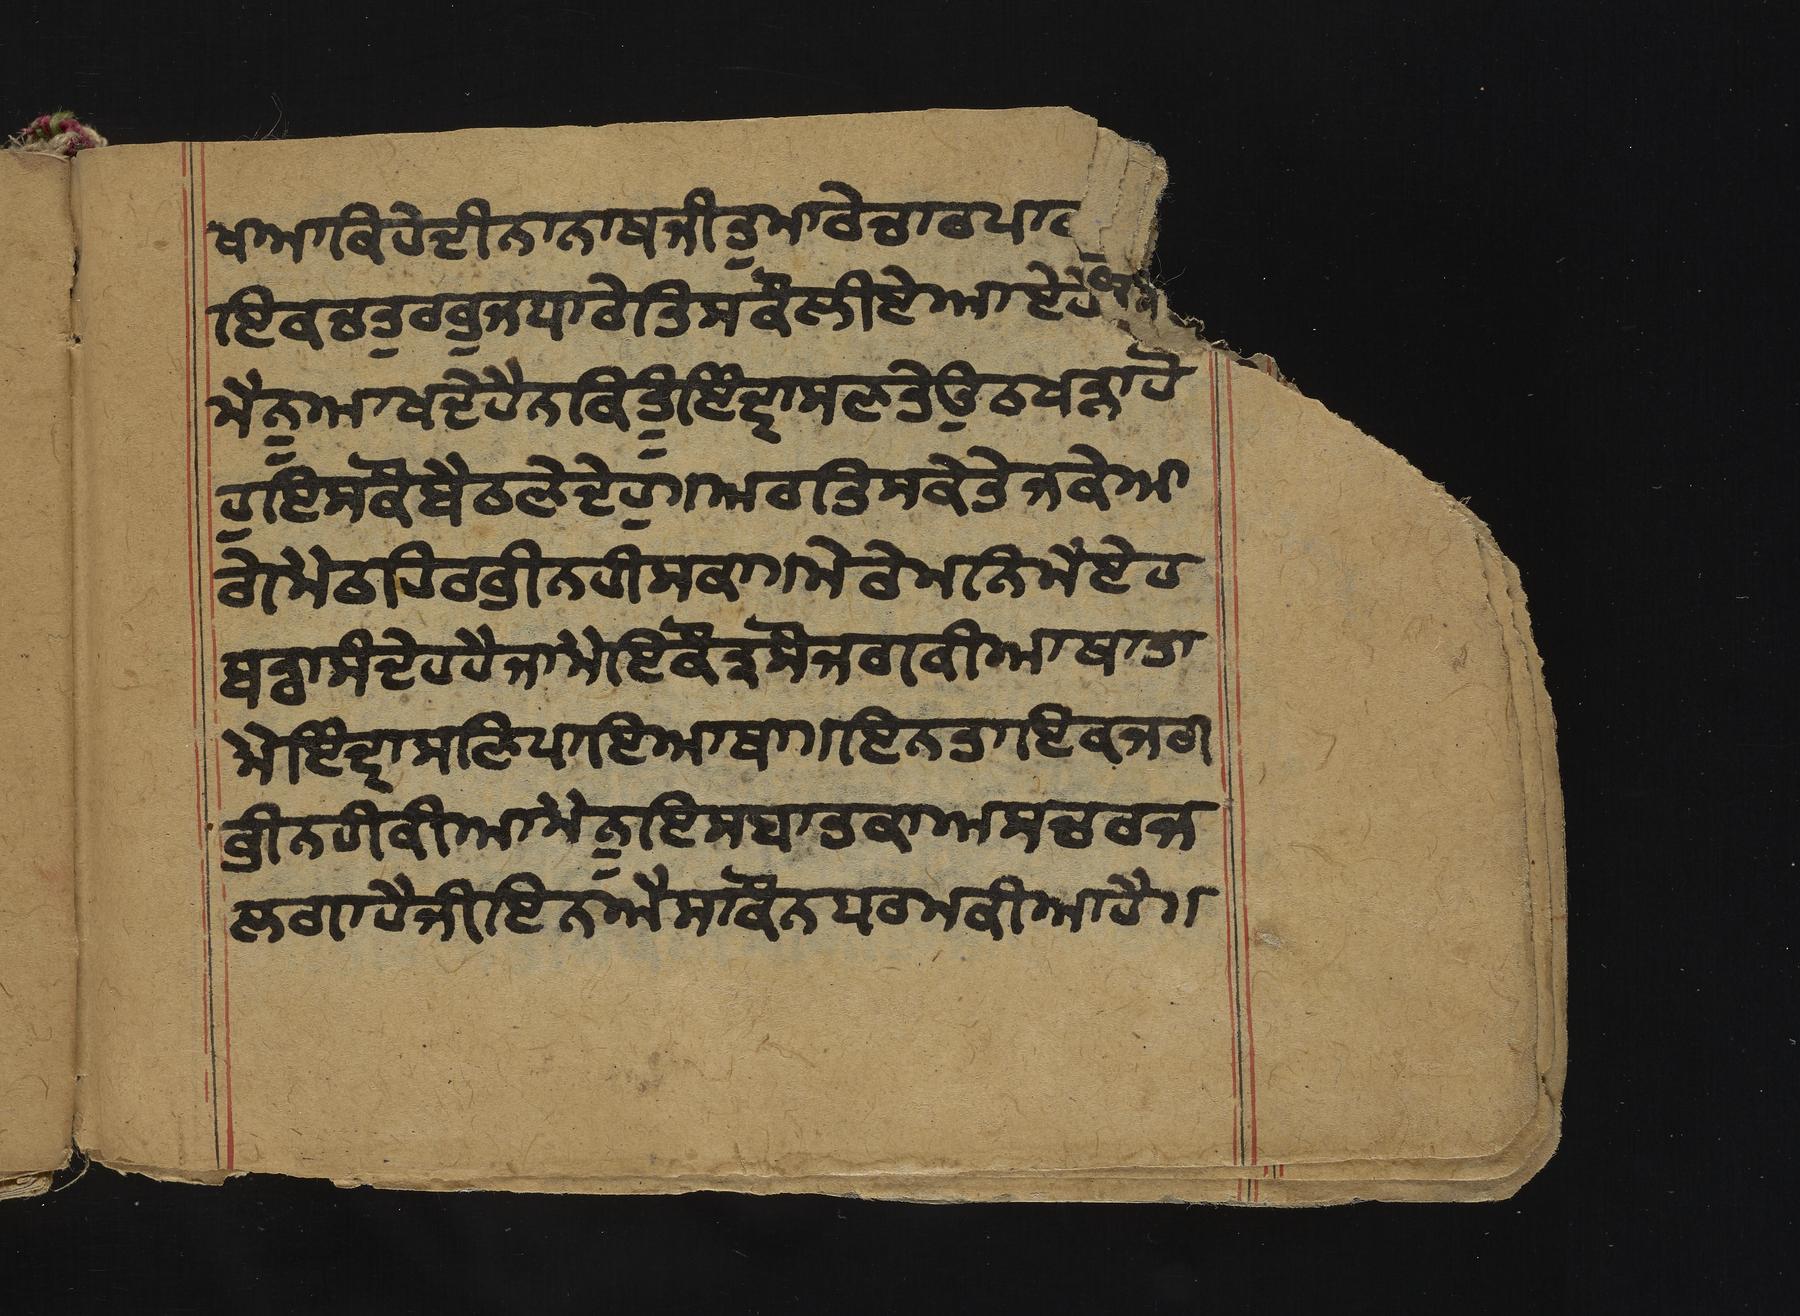 ਖਾਆਕਿਹੇਦੀਨਾਨਾਥਜੀਤੁਮਾਰੇਚਾਰਪਾ
ਇਕਚਤੁਰਭੁਜਧਾਰੇਤਿਸਕੌਲੀਏਆਏਹੈ
ਮੈਨੂਆਖਦੇਹੈਨਕਿਤੂੰਇੰਦ੍ਰਾਸਣਤੇਉਠਖੜਾਹੋ
ਹੁਇਸਕੌਬੈਠਣੇਦੇਹੁ॥ਅਰਤਿਸਕੇਤੇਜਕੇਆ
ਗੇਮੈਠਹਿਰਭੀਨਹੀਸਕਾ॥ਮੇਰੇਮਨਿਮੈਏਹ
ਬਡਾਸੰਦੇਹਹੈਜਾਮੈਇਕੌਤ੍ਰਸੌਜਗਕੀਆਥਾਤਾ
ਮੇਇੰਦ੍ਰਾਸਣਿਪਾਇਆਥਾ॥ਇਨਤਾਇਕਜਗ
ਭੀਨਹੀਕੀਆਮੈਨੂਇਸਬਾਤਕਾਅਸਚਰਜ
ਲਗਾਹੈਜੀਇਨਐਸਾਕੌਨਧਰਮਕੀਆਹੈ॥